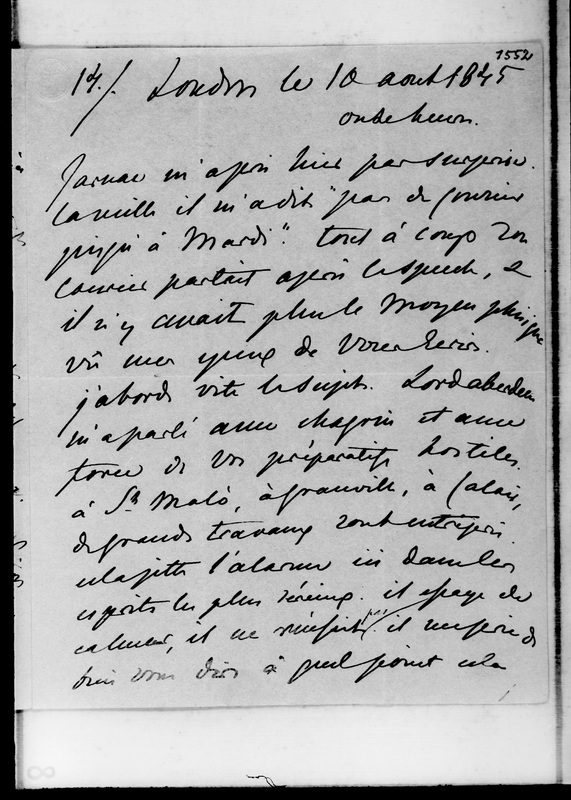 1552
14./. London le 10 août 1845
onze heures.
Jarnac m'a pris hier par surprise.
la veille il m'a dit "pas de courrier
jusqu'à Mardi". tout à coup son
courrier partait après le speech, &
il n'y avait plus le moyen physique
vu mes yeux de vous écrire.
j'aborde vite le sujet. Lord aberdeen
m'a parlé avec chagrin et avec
force de vos préparatifs hostiles.
à St Malo, à granville, à Calais,
de grands travaux sont entrepris.
cela jette l'alarme ici dans les
esprits les plus sérieux. il essaye de
calmer, il ne réussit pas. il me prie de
bien vous dire à quel point cela